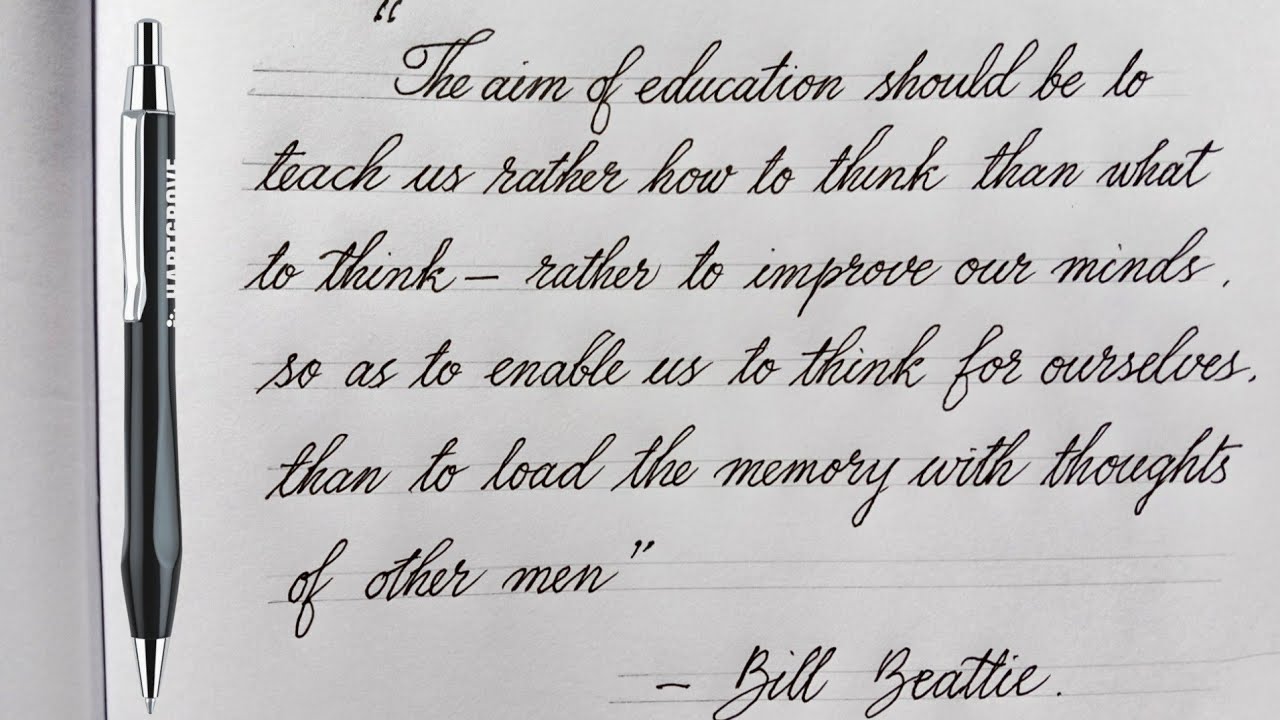 “
The aim of education should be to
teach us rather how to think than what
to think – rather to improve our minds,
so as to enable us to think for ourselves,
than to load the memory with thoughts
of other men”
– Bill Beattie.